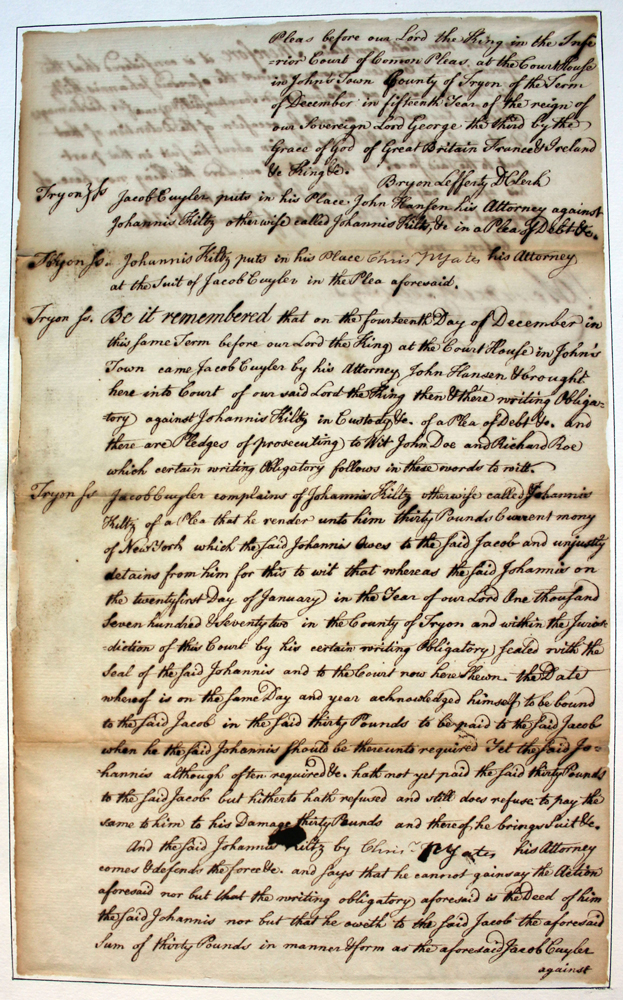 Pleas before our Lord the King in the Infe
=rior Court of Comon Pleas, at the Court House
in John's Town County of Tryon of the Term
of December in fifteenth Year of the reign of
our Sovereign Lord George the third by the
Grace of God of Great Britain France & Ireland
&c King &c.
Bryon Lefferty D Clerk
Tryon ss Jacob Cuyler puts in his Place John Hansen his Attorney against
Johannis Kiltz otherwise called Johannis Kiltz, &c in a Plea of Debt &c.
Tryon ss. Johannis Kiltz puts in his Place Chris. P Yates his Attorney
at the Suit of Jacob Cuyler in the Plea aforesaid.
Tryon ss. Be it remembered that on the fourteenth Day of December in
this same Term before our Lord the King at the Court House in John's
Town came Jacob Cuyler by his Attorney John Hansen & brought
here into Court of our said Lord the King then & there writing Obliga=
tory against Johannis Kiltz in Custody &c. of a Plea of Debt &c. and
there are Pledges of prosecuting to Wit John Doe and Richard Roe
which certain writing Obligatory follows in these words to witt.
Tryon ss Jacob Cuyler complains of Johannis Kiltz otherwise called Johannis
Kiltz of a Plea that he render unto him thirty Pounds Current mony
of New York which the said Johannis Owes to the said Jacob and unjustly
detains from him for this to wit that whereas the said Johannis on
the twentyfirst Day of January in the Year of our Lord One thousand
seven hundred & seventy two in the County of Tryon and within the Juris=
diction of this Court by his certain writing Obligatory sealed with the
Seal of the said Johannis and to the Court now here Shewn. the Date
whereof is on the same Day and year acknowledged himself to be bound
to the said Jacob in the said thirty Pounds to be paid to the said Jacob
when he the said Johannis should be thereunto required Yet the said Jo=
hannis although often required &c. hath not yet paid the said thirty Pounds
to the said Jacob but hitherto hath refused and still does refuse to pay the
same to him to his Damage thirty Pounds and thereof he brings Suit &c.
And the said Johannis Kiltz by Chris. P Yates his Attorney
comes & defends the force &c. and says that he cannot gainsay the Action
aforesaid nor but that the writing obligatory aforesaid is the Deed of him
the said Johannis nor but that he oweth to the said Jacob the aforesaid
Sum of thirty Pounds in manner & form as the aforesaid Jacob Cuyler
against